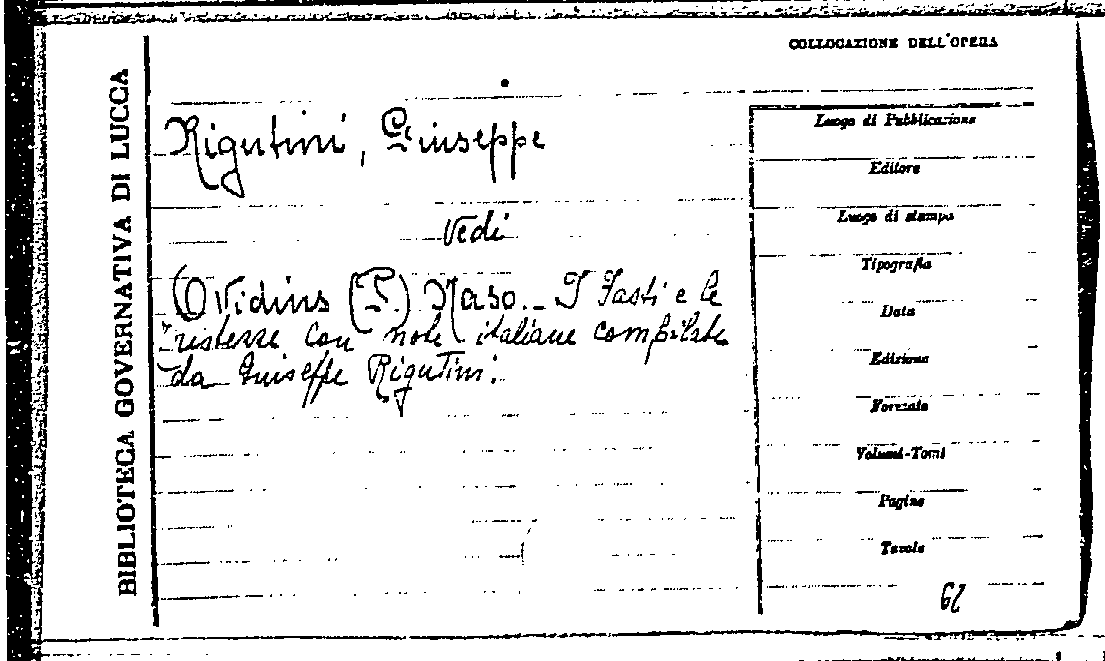 COLLOCAZIONE DELL'OPERA
BIBLIOTECA GOVERNATIVA DI LUCCA
Rigutini, Giuseppe
Vedi
Ovidius (P.) Naso. - I Fasti e le
Tristezze con note italiane compilate
da Giuseppe Rigutini.
Luogo di Pubblicazione
Editore
Luogo di stampa
Tipografia
Data
Edizione
Formato
Volumi-Tomi
Pagine
Tavole